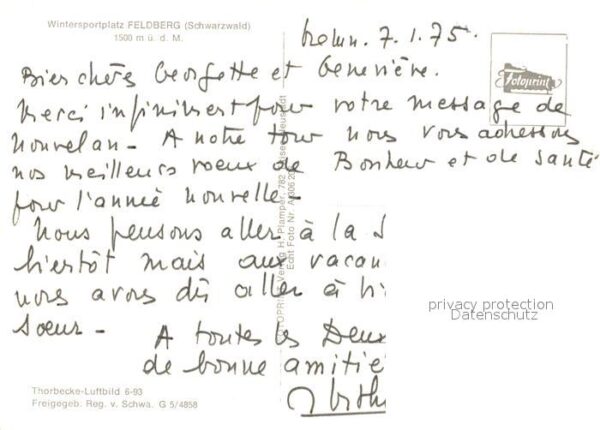 Wintersportplatz FELDBERG (Schwarzwald)
1500 m ü. d. M.
7.1.75.
Fotoprint
Bien chères Georgette et Geneviève.
Merci infiniment pour votre message de
Nouvelan - A notre tour nous vous adressons
nos meilleurs voeux de Bonheur et de santé
pour l'année nouvelle -
Nous pensons aller à la S
bientôt mais aux vacan
nous avons dû aller à
soeur - A toutes les Deux
de bonne amitié
FOTOPRINT-Verlag H. Plamper, 782
Echt Foto Nr.
privacy protection
Datenschutz
Thorbecke-Luftbild 6-93
Freigegeb. Reg. v. Schwa. G 5/4858